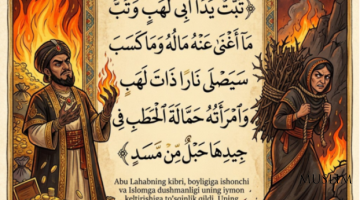 ﴿تَبَّتْ يَدَا أَبِي لَهَبٍ وَتَبَّ
مَا أَغْنَى عَنْهُ مَالُهُ وَمَا كَسَبَ
سَيَصْلَى نَارًا ذَاتَ لَهَبٍ
وَامْرَأَتُهُ حَمَّالَةَ الْحَطَبِ فِي
جِيدِهَا حَبْلٌ مِّن مَّسَدٍ﴾
Abu Lahabning kibri, boyligiga ishonchi
va Islomga dushmanligi uning iymon
keltirishiga to'sqinlik qildi. Uning